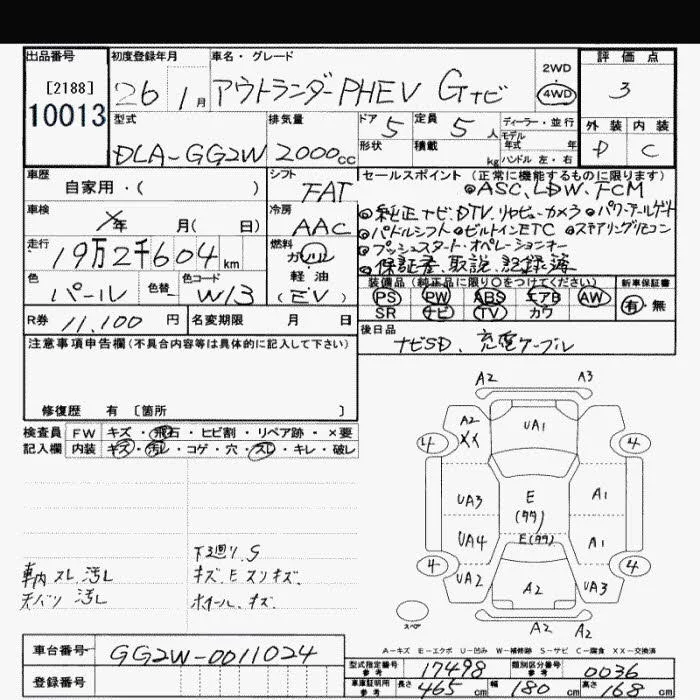 出品番号 初度登録年月 車名・グレード 評価点
[2188] 10013 26 1月 アウトランダーPHEV Gナビ 2WD 4WD 3
型式 排気量 ドア 5 定員 5人 ディーラー・並行 外装 内装
モデル年式 年式
DLA-GG2W 2000cc 形状 積載 kg ハンドル 左・右 D C
車歴 シフト セールスポイント(正常に機能するものに限ります)
自家用・( ) FAT ◎ASC、LDW、FCM
車検 冷房 ◎純正ナビ、DTV、リヤビューカメラ ◎パワーテールゲート
年 月( 日) AAC ◎パドルシフト ◎ビルトインETC ◎ステアリングリモコン
走行 燃料 ◎プッシュスタート・オペレーションキー
19万2千604km ガソリン ◎保証書、取説、記録簿
軽・油
色 色替 色コード 装備品(純正品に限り○をつけてください) 新車保証書
パール W13 (EV) PS PW ABS エアB AW 有・無
SR ナビ TV カワ
R券 11,100円 名変期限 月 日 後日品
ナビSD、充電ケーブル
注意事項申告欄(不具合内容等は具体的に記入して下さい)
修復歴 有 [箇所 ]
検査員 FW キズ・飛石・ヒビ割・リペア跡・×要
記入欄 内装 キズ・汚レ・コゲ・穴・スレ・キレ・破レ
A2 A3
A2 XX UA1
4 4
UA3 E (タタ) A1
UA4 E(タタ) A1
4 4
UA2 A2 UA3
A2 A2
スペア
下廻り、S
車内 スレ、汚レ キズ、E スリキズ、
天バリ 汚レ ホイール、キズ、
A-キズ E-エクボ U-凹み W-補修跡 S-サビ C-腐食 XX-交換済
車台番号 GG2W-0011024
型式指定番号 参考 17498 類別区分番号 参考 0036
登録番号 車庫証明用 参考 長さ 465cm 幅 180cm 高さ 168cm